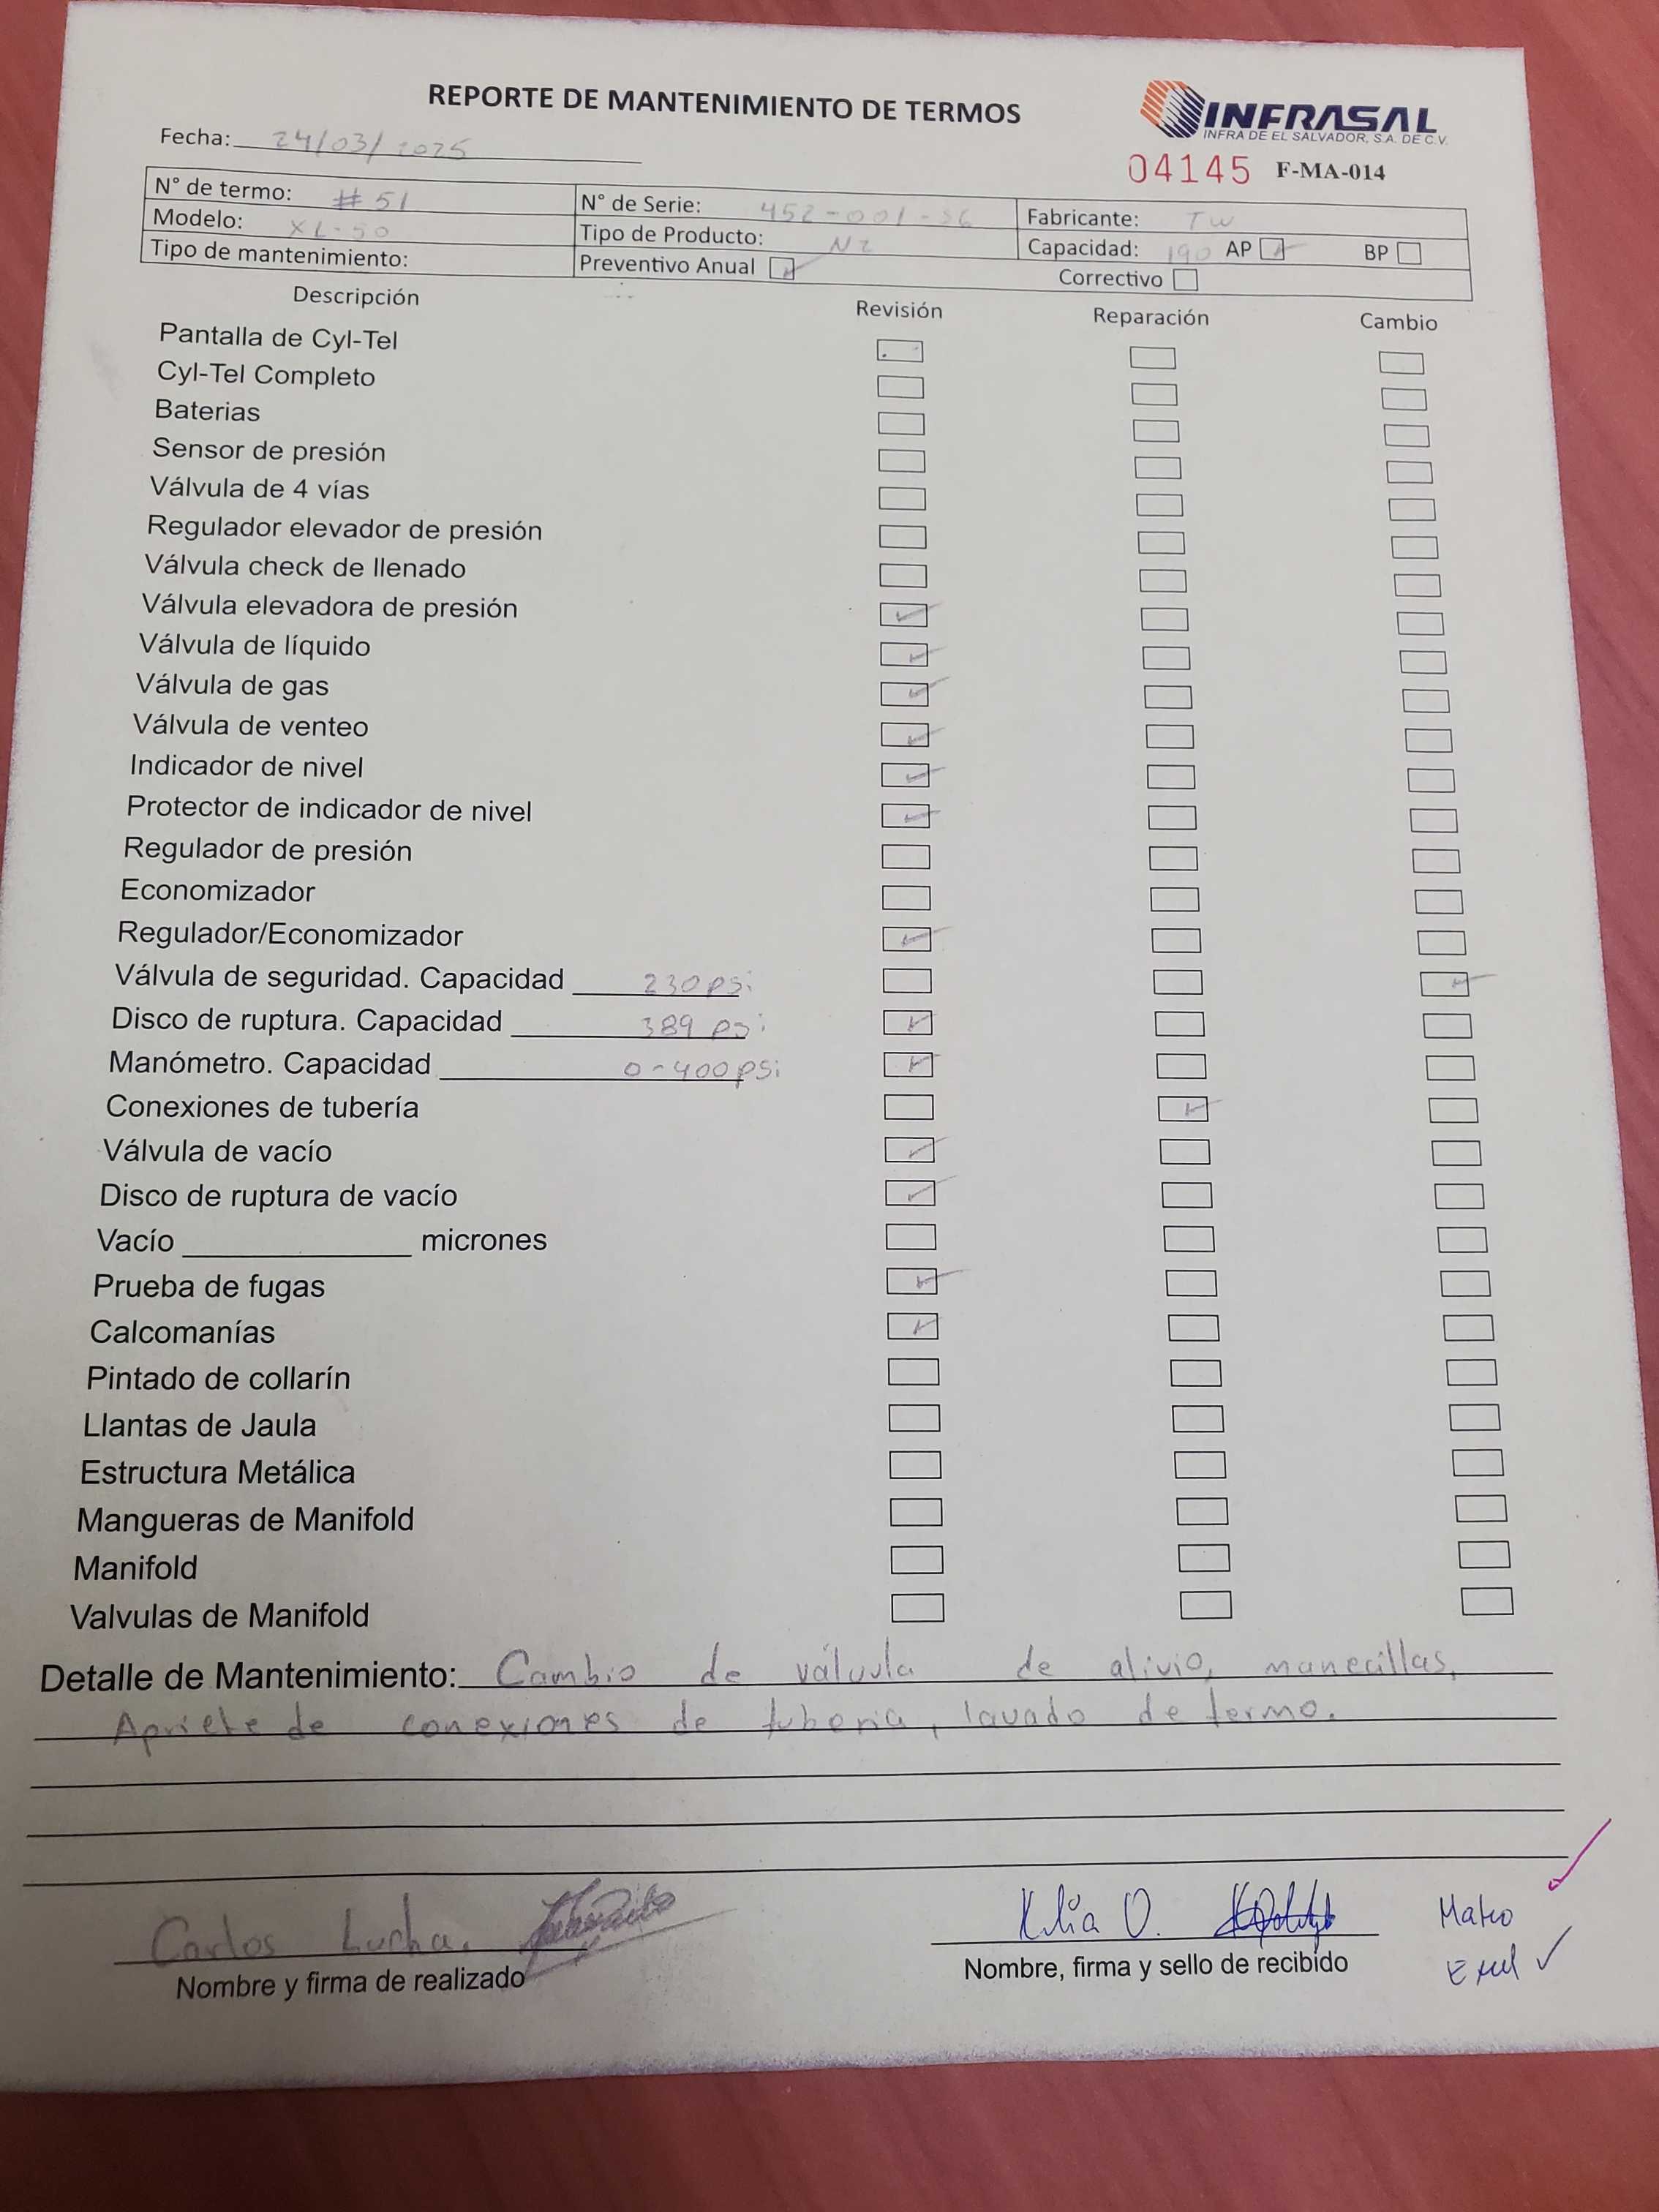 REPORTE DE MANTENIMIENTO DE TERMOS
INFRASAL
INFRA DE EL SALVADOR, S.A. DE C.V.
Fecha: 24/03/2025
04145 F-MA-014
N° de termo: #51 N° de Serie: 452-001-36 Fabricante: TW
Modelo: XL-50 Tipo de Producto: N2 Capacidad: 190 AP BP
Tipo de mantenimiento: Preventivo Anual Correctivo
Descripción Revisión Reparación Cambio
Pantalla de Cyl-Tel
Cyl-Tel Completo
Baterias
Sensor de presión
Válvula de 4 vías
Regulador elevador de presión
Válvula check de llenado
Válvula elevadora de presión
Válvula de líquido
Válvula de gas
Válvula de venteo
Indicador de nivel
Protector de indicador de nivel
Regulador de presión
Economizador
Regulador/Economizador
Válvula de seguridad. Capacidad 230 psi
Disco de ruptura. Capacidad 389 psi
Manómetro. Capacidad 0-400 psi
Conexiones de tubería
Válvula de vacío
Disco de ruptura de vacío
Vacío micrones
Prueba de fugas
Calcomanías
Pintado de collarín
Llantas de Jaula
Estructura Metálica
Mangueras de Manifold
Manifold
Valvulas de Manifold
Detalle de Mantenimiento: Cambio de válvula de alivio, manecillas,
Apriete de conexiones de tuberia, lavado de termo.
Carlos
Nombre y firma de realizado
O.
Nombre, firma y sello de recibido